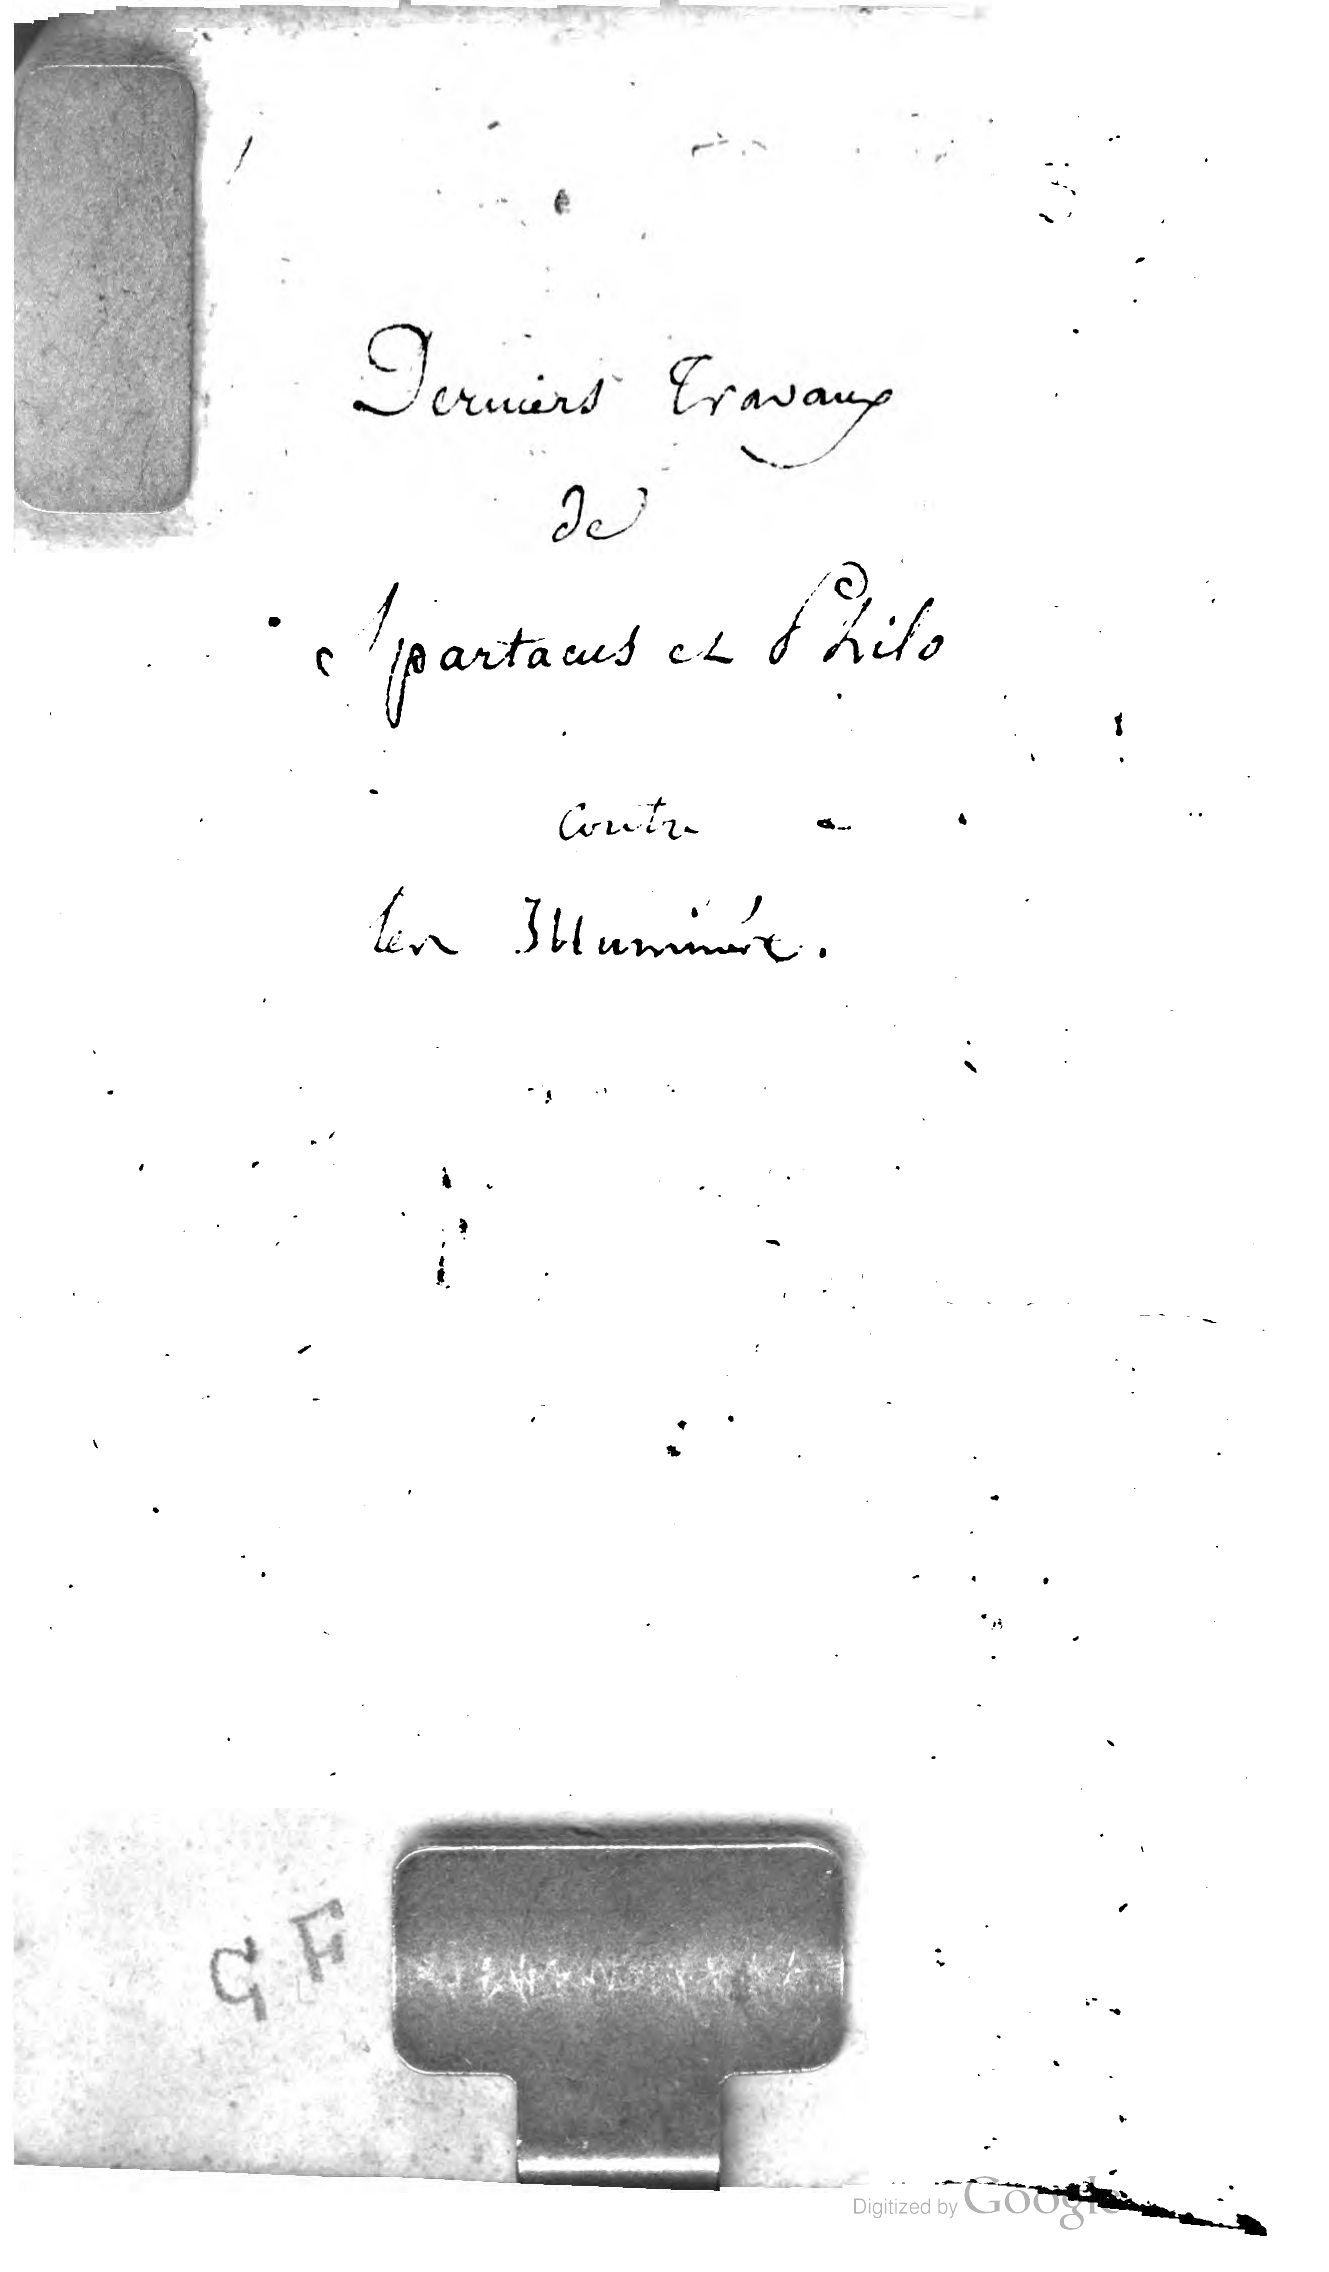 Derniers Travaux
de
Spartacus et Philo
contre
les Illuminés.
Digitized by Google